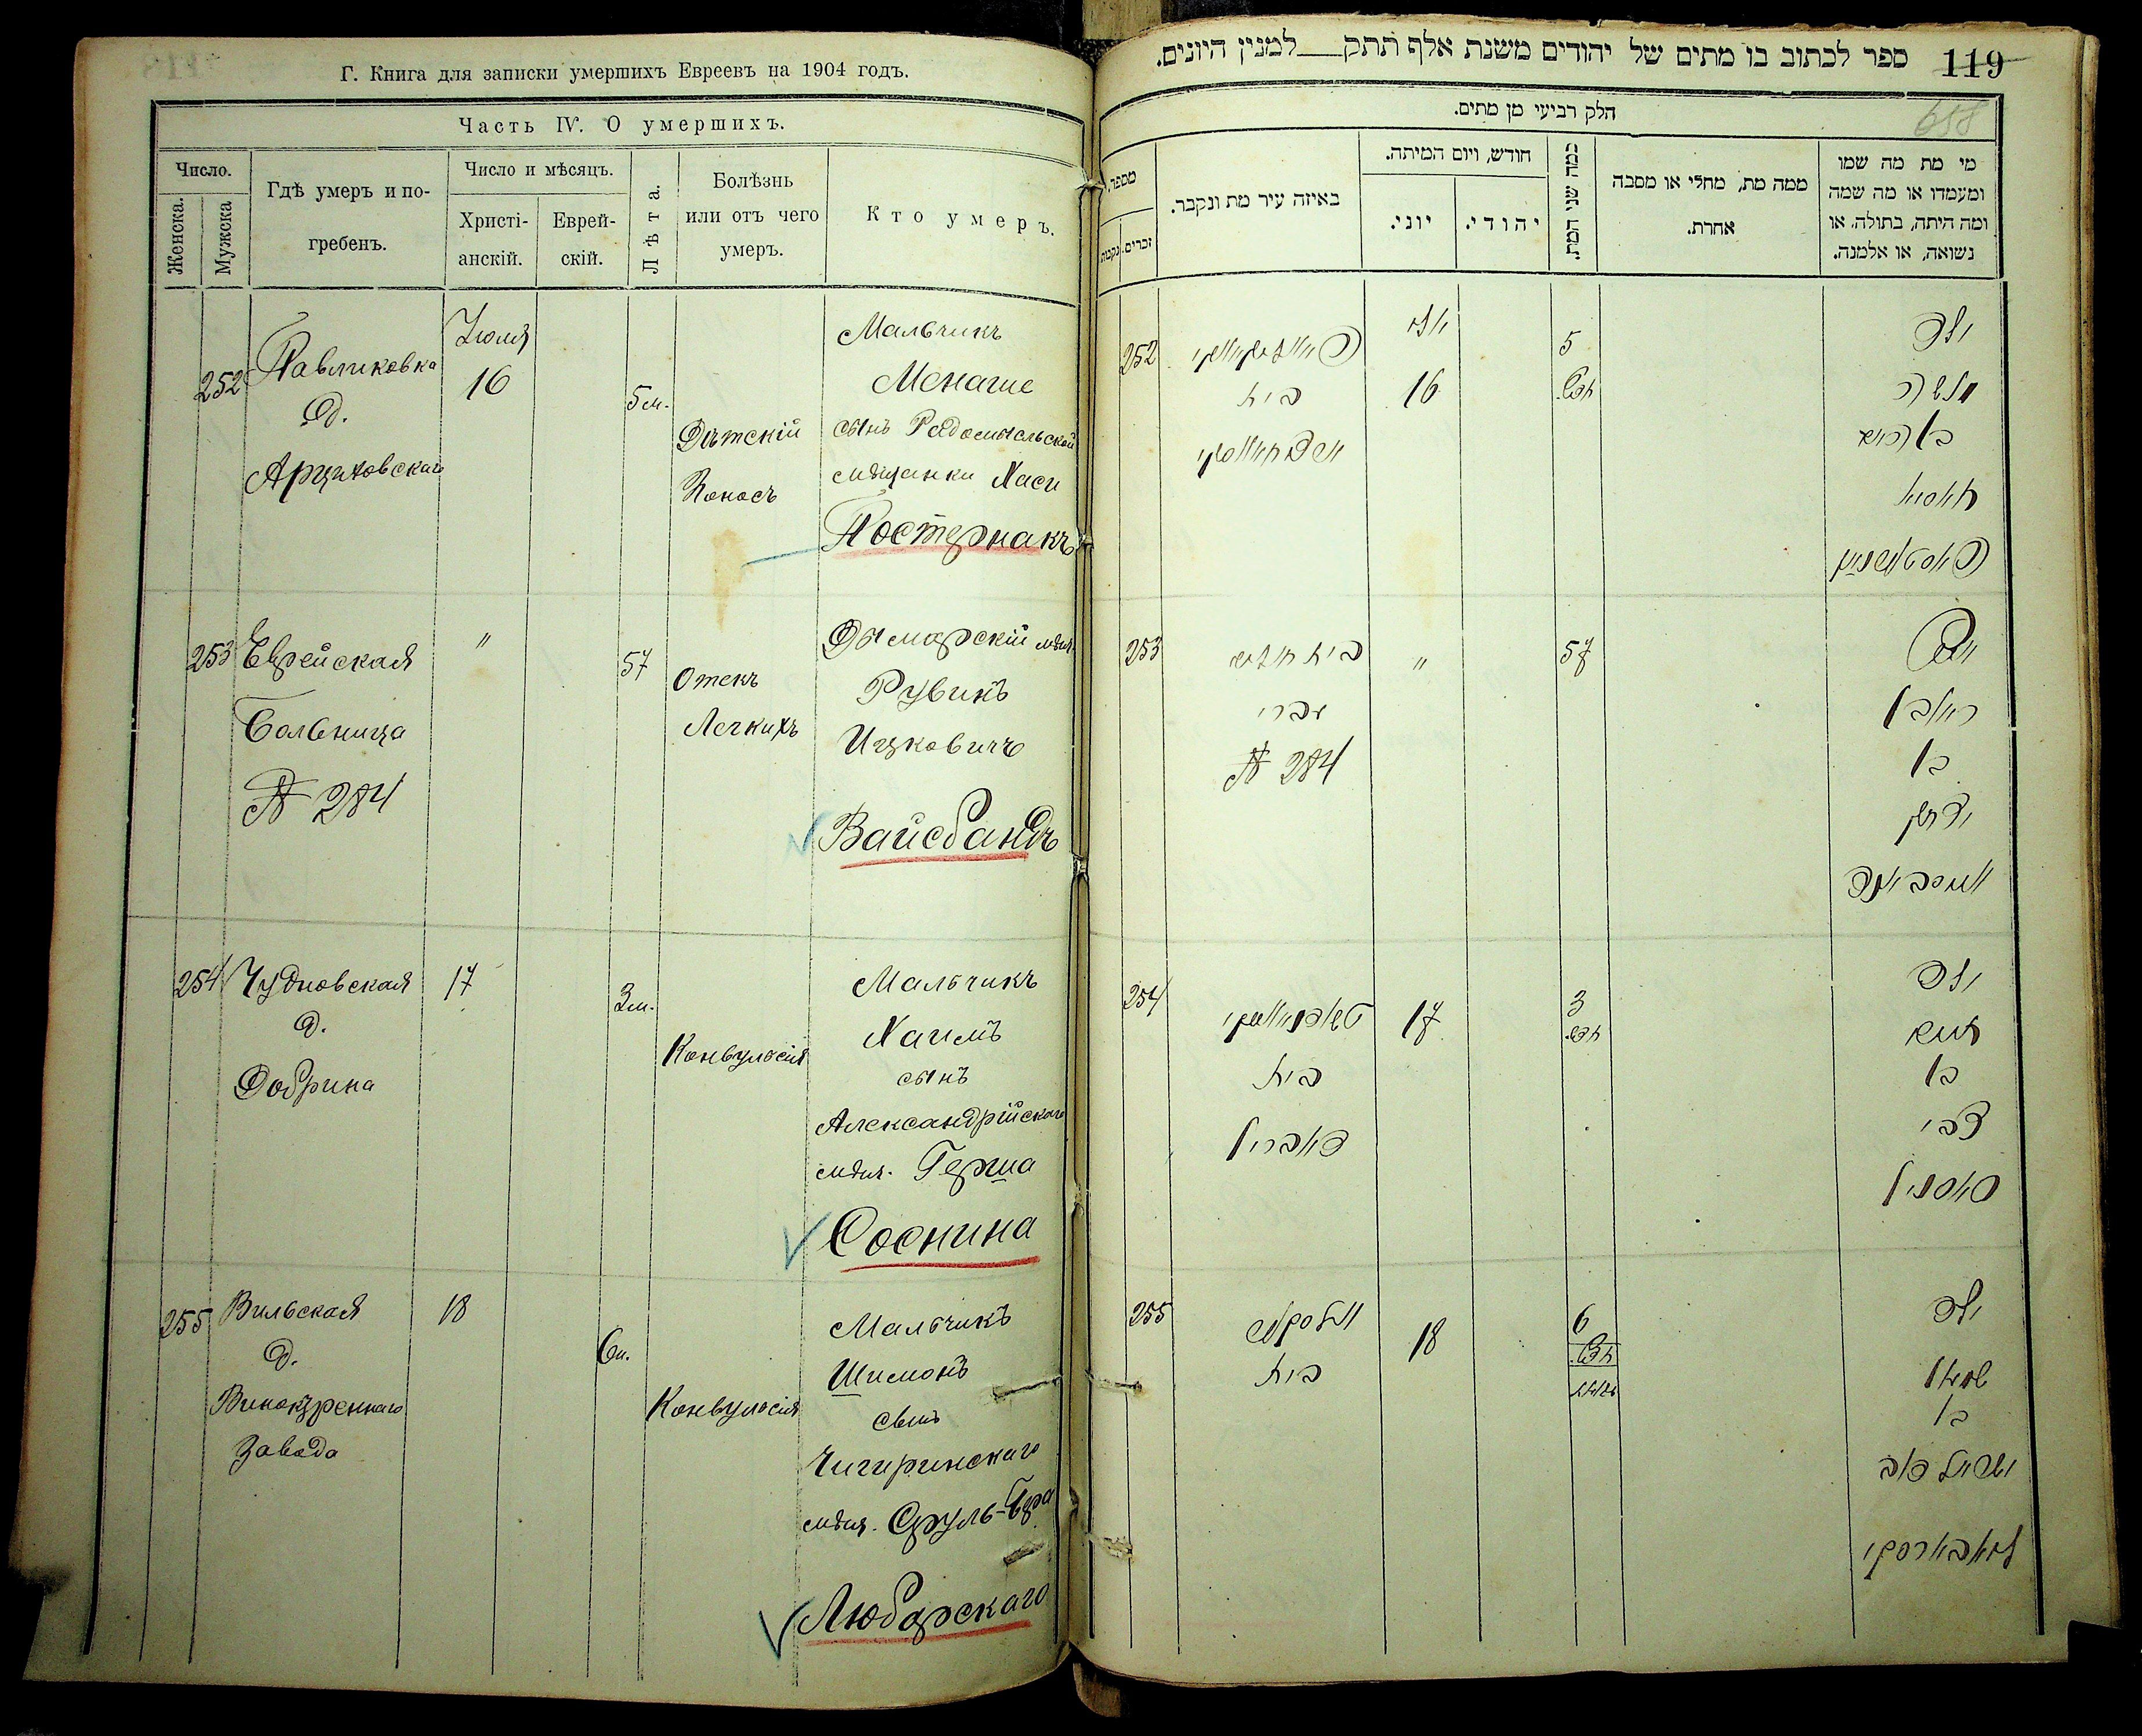 Г. Книга для записки умершихъ Евреевъ на 1904 годъ.
Часть IV. О умершихъ.
Число.
Женска.
Мужска
Гдѣ умеръ и по-
гребенъ.
Число и мѣсяцъ.
Христі-
анскій.
Еврей-
скій.
Лѣта.
Болѣзнь
или отъ чего
умеръ.
Кто умеръ.
252
Павликовка
д.
Арциховскаго
Іюля
16
5 м.
Дѣтскій
Поносъ
Мальчикъ
Менаше
сынъ Радомысльской
мѣщанки Хаси
Постернакъ
253
Еврейская
Больница
№ 284
"
57
Отекъ
Легкихъ
Дымерскій мѣщ.
Рувинъ
Ицковичъ
Вайсбандъ
254
Чудновская
д.
Добрина
17
3 м.
Конвульсія
Мальчикъ
Хаимъ
сынъ
Александрійскаго
мѣщ. Герша
Соснина
255
Вильская
д.
Винокуреннаго
Завода
18
6 м.
Конвульсія
Мальчикъ
Шимонъ
сынъ
Чигиринскаго
мѣщ. Сруль-Бера
Любарскаго
119
ספר לכתוב בו מתים של יהודים משנת אלף תתק למנין היונים.
חלק רביעי מן מתים.
מספר.
זכרים.
נקבות
באיזה עיר מת ונקבר.
חודש, ויום המיתה.
יוני.
יהודי.
כמה שני המת.
ממה מת, מחלי או מסבה
אחרת.
מי מת מה שמו
ומעמדו או מה שמה
ומה היתה, בתולה, או
נשואה, או אלמנה.
252
בית
יולי
16
5
חדש.
ילד
מנשה
253
בית חולים
עברי
№ 284
"
57
ראובן
בן
יצחק
254
בית
דאברין
17
3
חדש.
ילד
חיים
בן
צבי
סאסנין
255
ווילסקע
בית
18
6
חדש.
ילד
שמעון
בן
ישראל בער
ליובארסקי